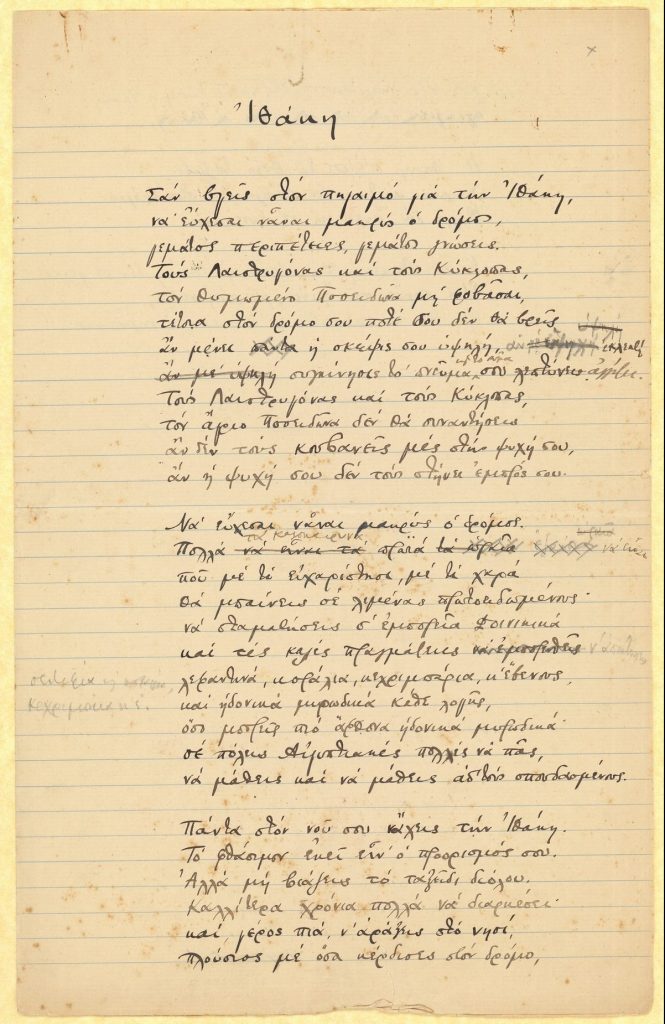 Ἰθάκη
Σάν βγεῖς στόν πηγαιμό γιά τήν Ἰθάκη,
νά εὔχεσαι νἆναι μακρύς ὁ δρόμος,
γεμάτος περιπέτειες, γεμάτος γνώσεις.
Τούς Λαιστρυγόνας καί τούς Κύκλωπας,
τόν θυμωμένο Ποσειδῶνα μή φοβᾶσαι,
τέτοια στόν δρόμο σου ποτέ σου δέν θά βρεῖς
ἄν μένει πάντα ἡ σκέψις σου ὑψηλή, ἐκλεκτή
ἄν μέ ὑψηλή συγκίνησις τό πνεῦμα σου
Τούς Λαιστρυγόνας καί τούς Κύκλωπας,
τόν ἄγριο Ποσειδῶνα δέν θά συναντήσεις
ἄν δέν τούς κουβανεῖς μές στήν ψυχή σου,
ἄν ἡ ψυχή σου δέν τούς στήνει ἐμπρός σου.
Νά εὔχεσαι νἆναι μακρύς ὁ δρόμος.
τά καλοκαιρινά
Πολλά νά εἶναι τά πρωϊά νά εἶναι
πού μέ τί εὐχαρίστησι, μέ τί χαρά
θά μπαίνεις σέ λιμένας πρωτοειδωμένους·
νά σταματήσεις σ' ἐμπορεῖα Φοινικικά
καί τές καλές πραγμάτειες
σεντέφια
κεχριμπάρια κ' ἐ.
λεχαντινά, κοράλια, κεχριμπάρια, κ' ἔβενους,
καί ἡδονικά μυρωδικά κάθε λογῆς,
ὅσο μπορεῖς πιό ἄφθονα ἡδονικά μυρωδικά·
σέ πόλεις Αἰγυπτιακές πολλές νά πᾶς,
νά μάθεις καί νά μάθεις ἀπ' τούς σπουδασμένους.
Πάντα στόν νοῦ σου νἄχεις τήν Ἰθάκη.
Τό φθάσιμον ἐκεῖ εἶν' ὁ προορισμός σου.
Ἀλλά μή βιάζεις τό ταξεῖδι διόλου.
Καλλίτερα χρόνια πολλά νά διαρκέσει·
καί, γέρος πιά, ν' ἀράξεις στό νησί,
πλούσιος μέ ὅσα κέρδισες στόν δρόμο,